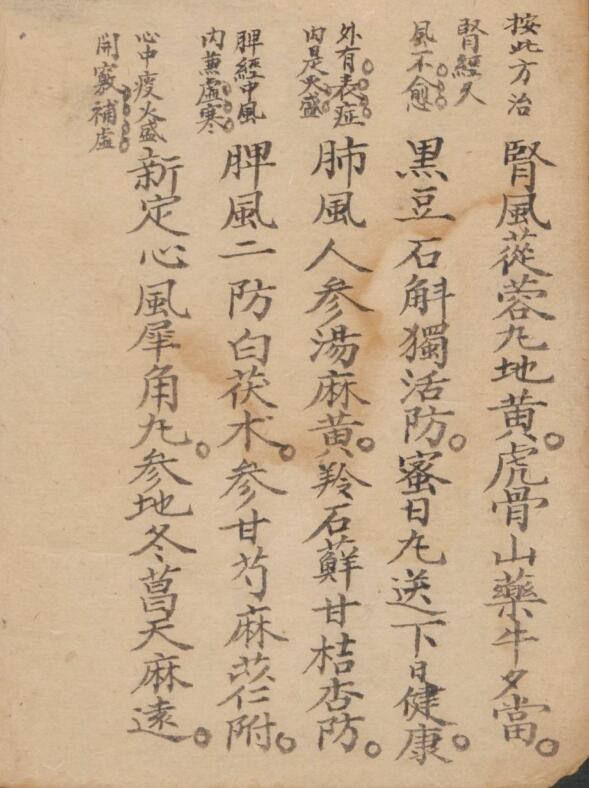 按此方治
腎經久
風不愈
腎風蓯蓉九地黃。虎骨山藥牛夕當。
黑豆石斛獨活防。蜜日九送下日健康。
外有表症
內是火盛
肺風人參湯麻黃。羚石蘇甘桔杏防。
脾經中風
內兼虛寒
脾風二防白茯朮。參甘芍麻苡仁附。
心中痰火盛
開竅補虛
新定心風犀角九。參地冬菖天麻遠。